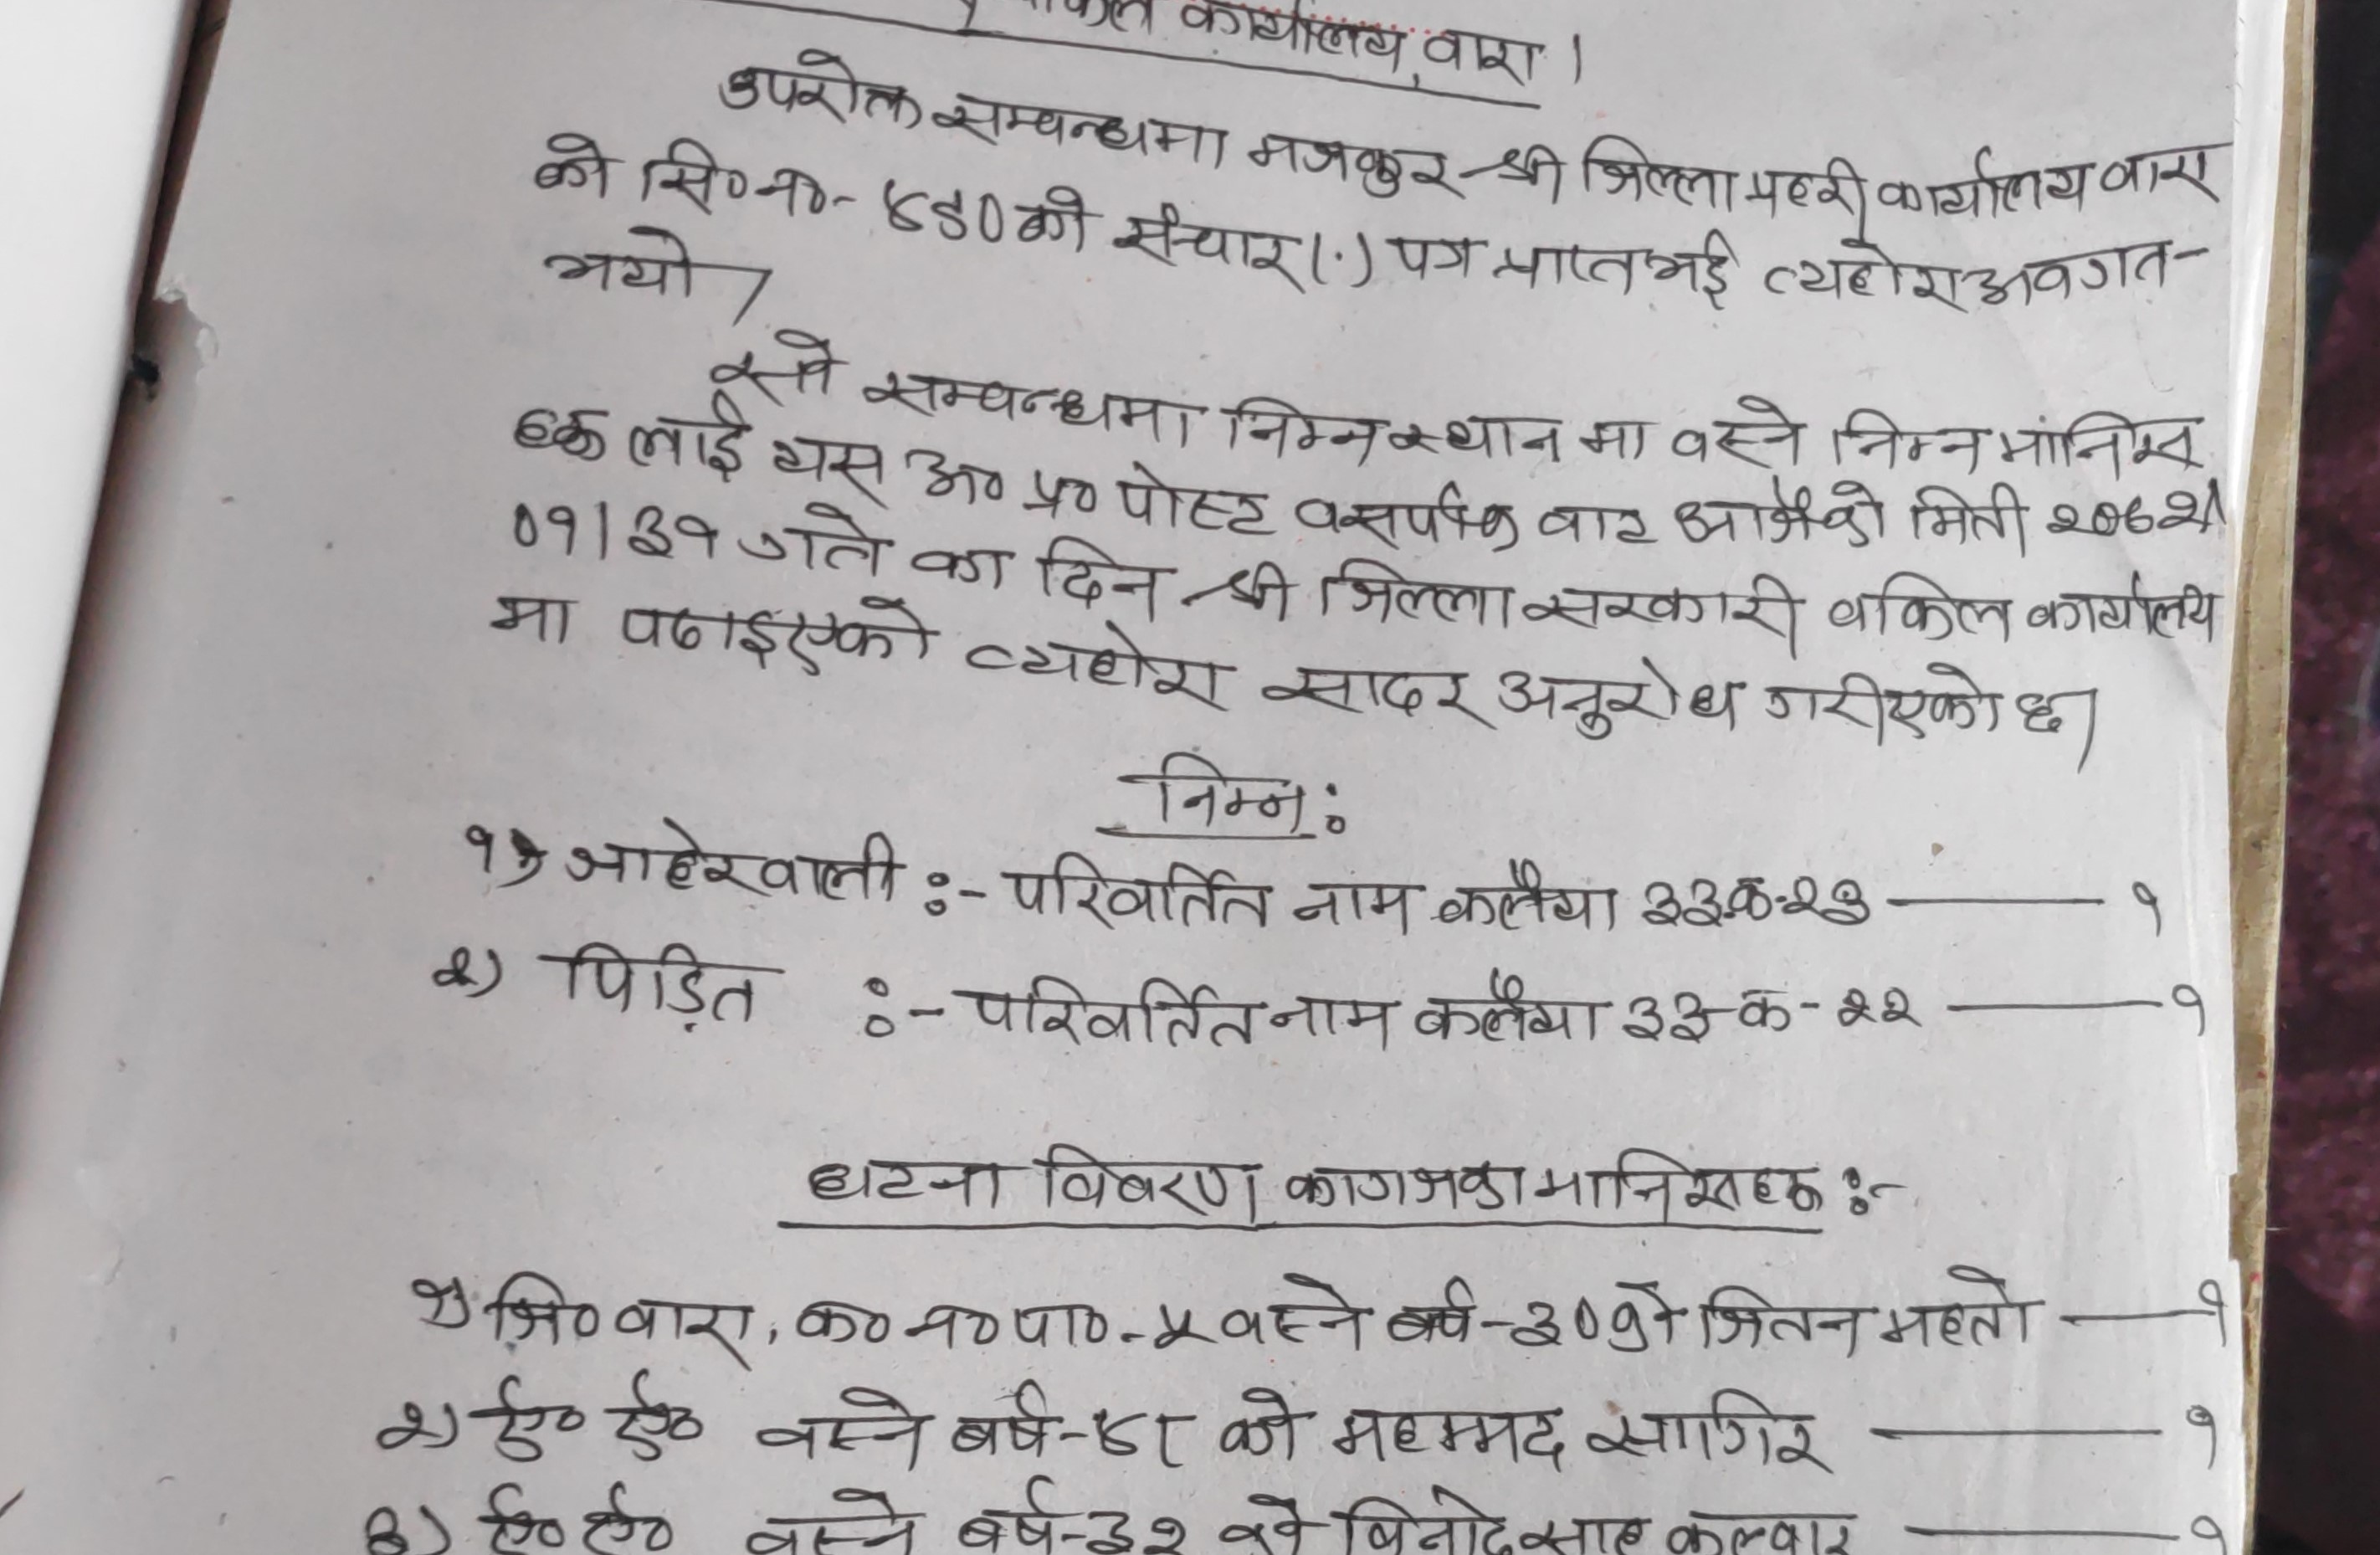 वकिल कार्यालय, वारा।
उपरोक्त सम्वन्धमा मजकुर श्री जिल्ला प्रहरी कार्यालय वारा
को सि०न०- ४८० को संचार(.) पत्र प्राप्त भई व्यहोरा अवगत-
भयो।
सो सम्वन्धमा निम्न स्थान मा वस्ने निम्न मानिस
हरु लाई यस अ० प्र० पोस्ट वाट आजैको मिती
०१।३१ गते का दिन श्री जिल्ला सरकारी वकिल कार्यालय
मा पठाइएको व्यहोरा सादर अनुरोध गरीएको छ।
निम्न:
१) जाहेरवाली :- परिवर्तित नाम कलैया ३३-क-२३ —— १
२) पिडित :- परिवर्तित नाम कलैया ३३-क-२२ —— १
घटना विबरण कागजका मानिसहरु :-
१) जि० वारा, क० न० पा० -५ वस्ने बर्ष-३० को जितन महतो —— १
२) ऐ० ऐ० वस्ने बर्ष-४८ को महम्मद सागिर —— १
३) ऐ० ऐ० वस्ने बर्ष-३२ को बिनोद साह कलवार —— १